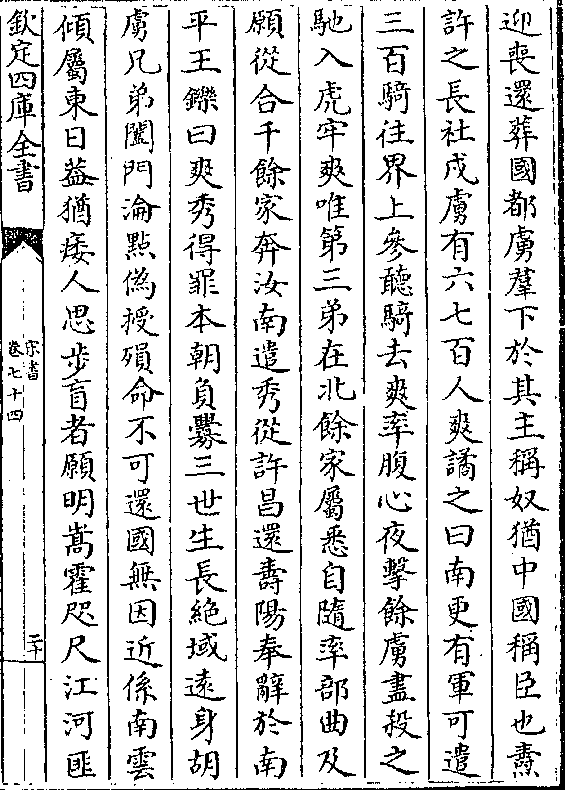 迎喪還葬國都虜羣下於其主稱奴猶中國稱臣也燾
許之長社戍虜有六七百人爽譎之曰南更有軍可遣
三百騎往界上參聽騎去爽率腹心夜擊餘虜盡殺之
馳入虎牢爽唯第三弟在北餘家屬悉自隨率部曲及
願從合千餘家奔汝南遣秀從許昌還壽陽奉辭於南
平王鑠曰爽秀得罪本朝負釁三世生長絶域遠身胡
虜兄弟闔門淪點僞授殞命不可還國無因近係南雲
傾屬東日葢猶痿人思步盲者願明嵩霍咫尺江河匪
欽定四庫全書
宋書
卷七十四
二十